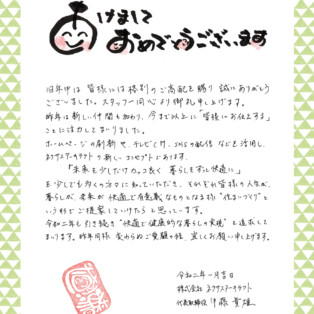 あけまして
おめでとうございます
旧年中は 皆様には格別のご高配を賜り 誠にありがとう
ございました。スタッフ一同 心より御礼申し上げます。
昨年は新しい仲間も加わり、今まで以上に「皆様にお伝えする」
ことに注力してまいりました。
ホームページの刷新や、テレビCM、SNSの配信 などを活用し、
ネクサスアーキテクトの新しいコンセプトであります、
「未来を少しだけカッコ良く 暮らしを少し快適に」
を少しでも多くの方々に知っていただき、それぞれ皆様の人生が、
暮らしが、未来が 快適で有意義なものとなる様 "住まいづくり" と
いう形でご提案していけたらと思っています。
令和二年も引き続き "快適で健康的な暮らしの実現" を追求して
まいります。昨年同様 変わらぬご愛顧の程、宜しくお願い申し上げます。
令和二年一月吉日
株式会社 ネクサスアーキテクト
代表取締役 伊藤